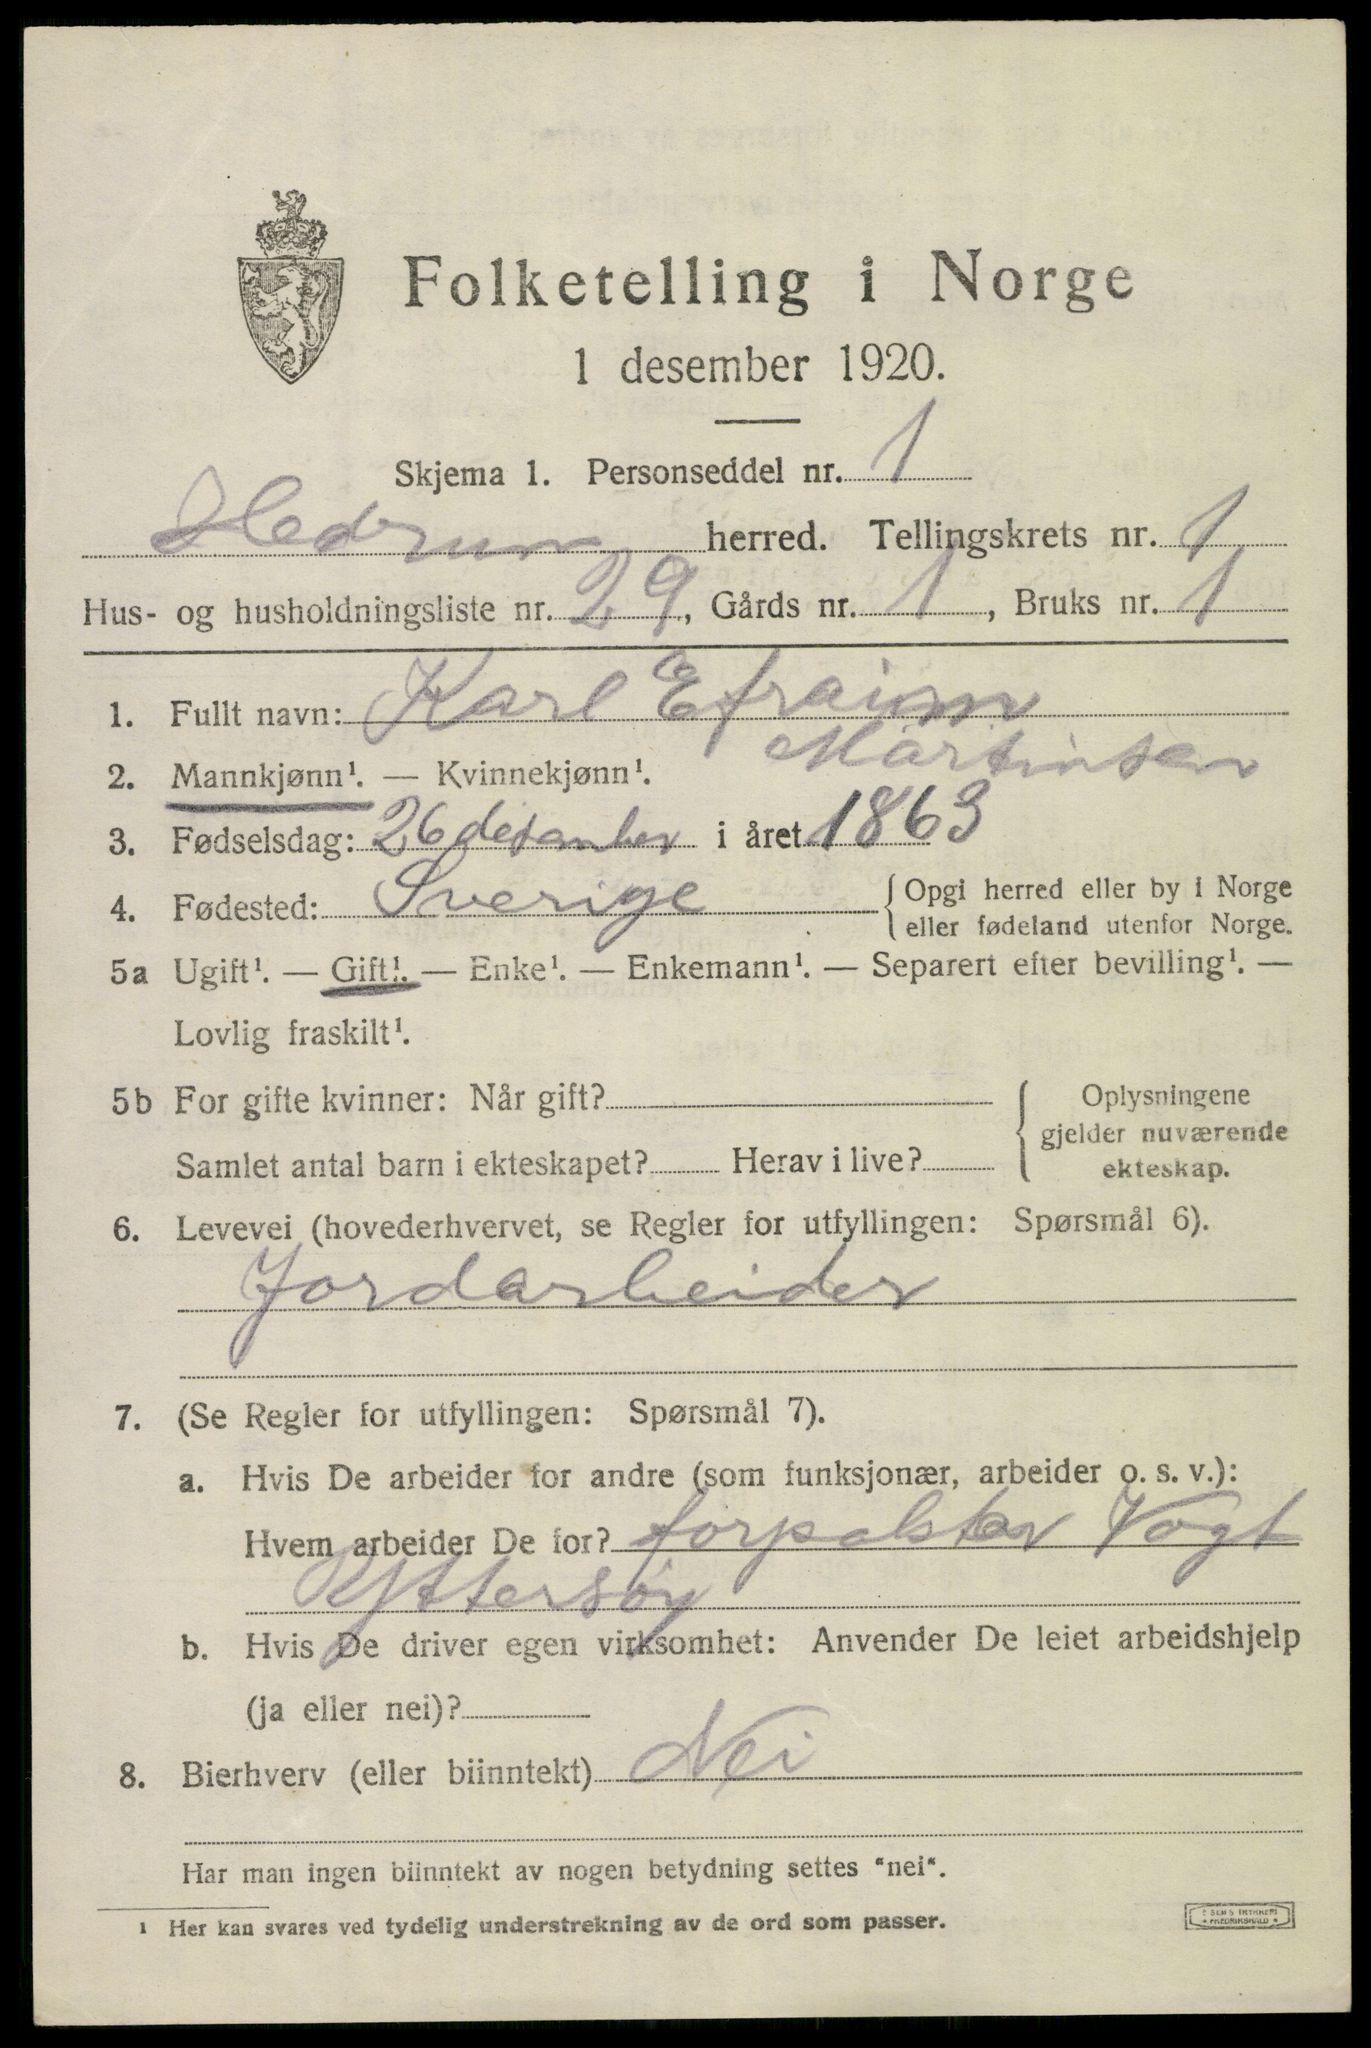 Folketelling i Norge
1 desember 1920.
Skjema 1. Personseddel nr. 1
Hedrum herred. Tellingskrets nr. 1
Hus- og husholdningsliste nr. 29, Gårds nr. 1, Bruks nr. 1
1. Fullt navn: Karl Efraim
Martinsen
2. Mannkjønn¹. — Kvinnekjønn¹.
3. Fødselsdag: 26 desember i året 1863
4. Fødested: Sverige { Opgi herred eller by i Norge
eller fødeland utenfor Norge.
5a Ugift¹. — Gift¹. — Enke¹. — Enkemann¹. — Separert efter bevilling¹. —
Lovlig fraskilt¹.
5b For gifte kvinner: Når gift? { Oplysningene
gjelder nuværende
Samlet antal barn i ekteskapet? Herav i live? ekteskap.
6. Levevei (hovederhvervet, se Regler for utfyllingen: Spørsmål 6).
Jordarbeider
7. (Se Regler for utfyllingen: Spørsmål 7).
a. Hvis De arbeider for andre (som funksjonær, arbeider o. s. v.):
Hvem arbeider De for? forpakter Vogt
Yttersøy
b. Hvis De driver egen virksomhet: Anvender De leiet arbeidshjelp
(ja eller nei)?
8. Bierhverv (eller biinntekt) Nei
Har man ingen biinntekt av nogen betydning settes "nei".
¹ Her kan svares ved tydelig understrekning av de ord som passer.